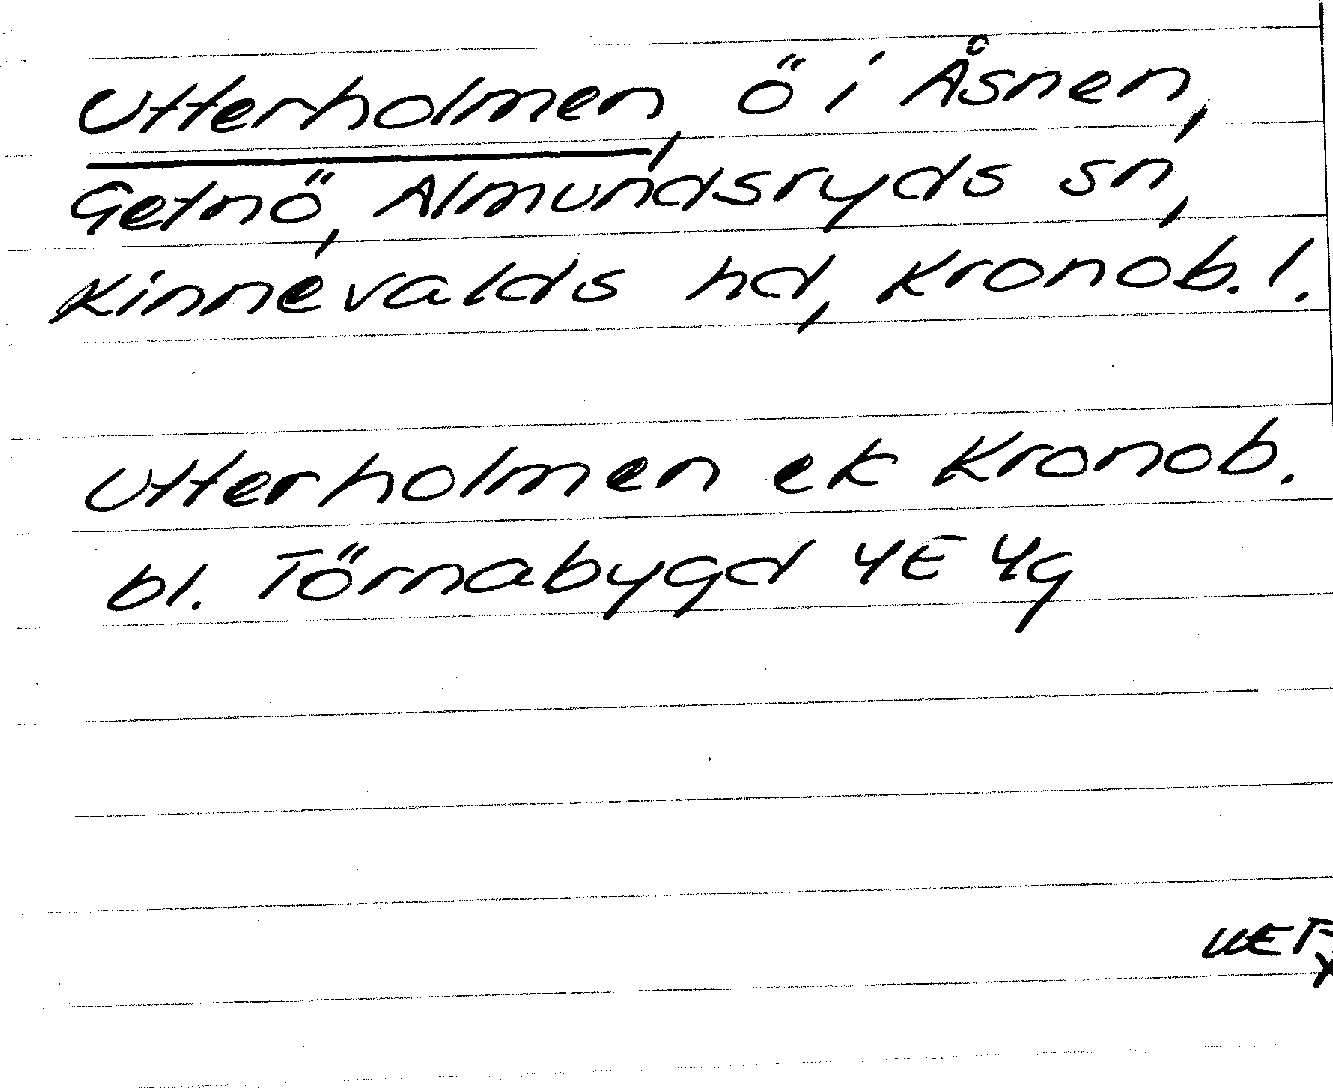 Utterholmen, ö i Åsnen,
Getnö, Almundsryds sn,
Kinnevalds hd, Kronob. l.
Utterholmen ek Kronob.
bl. Törnabygd 4E 4g